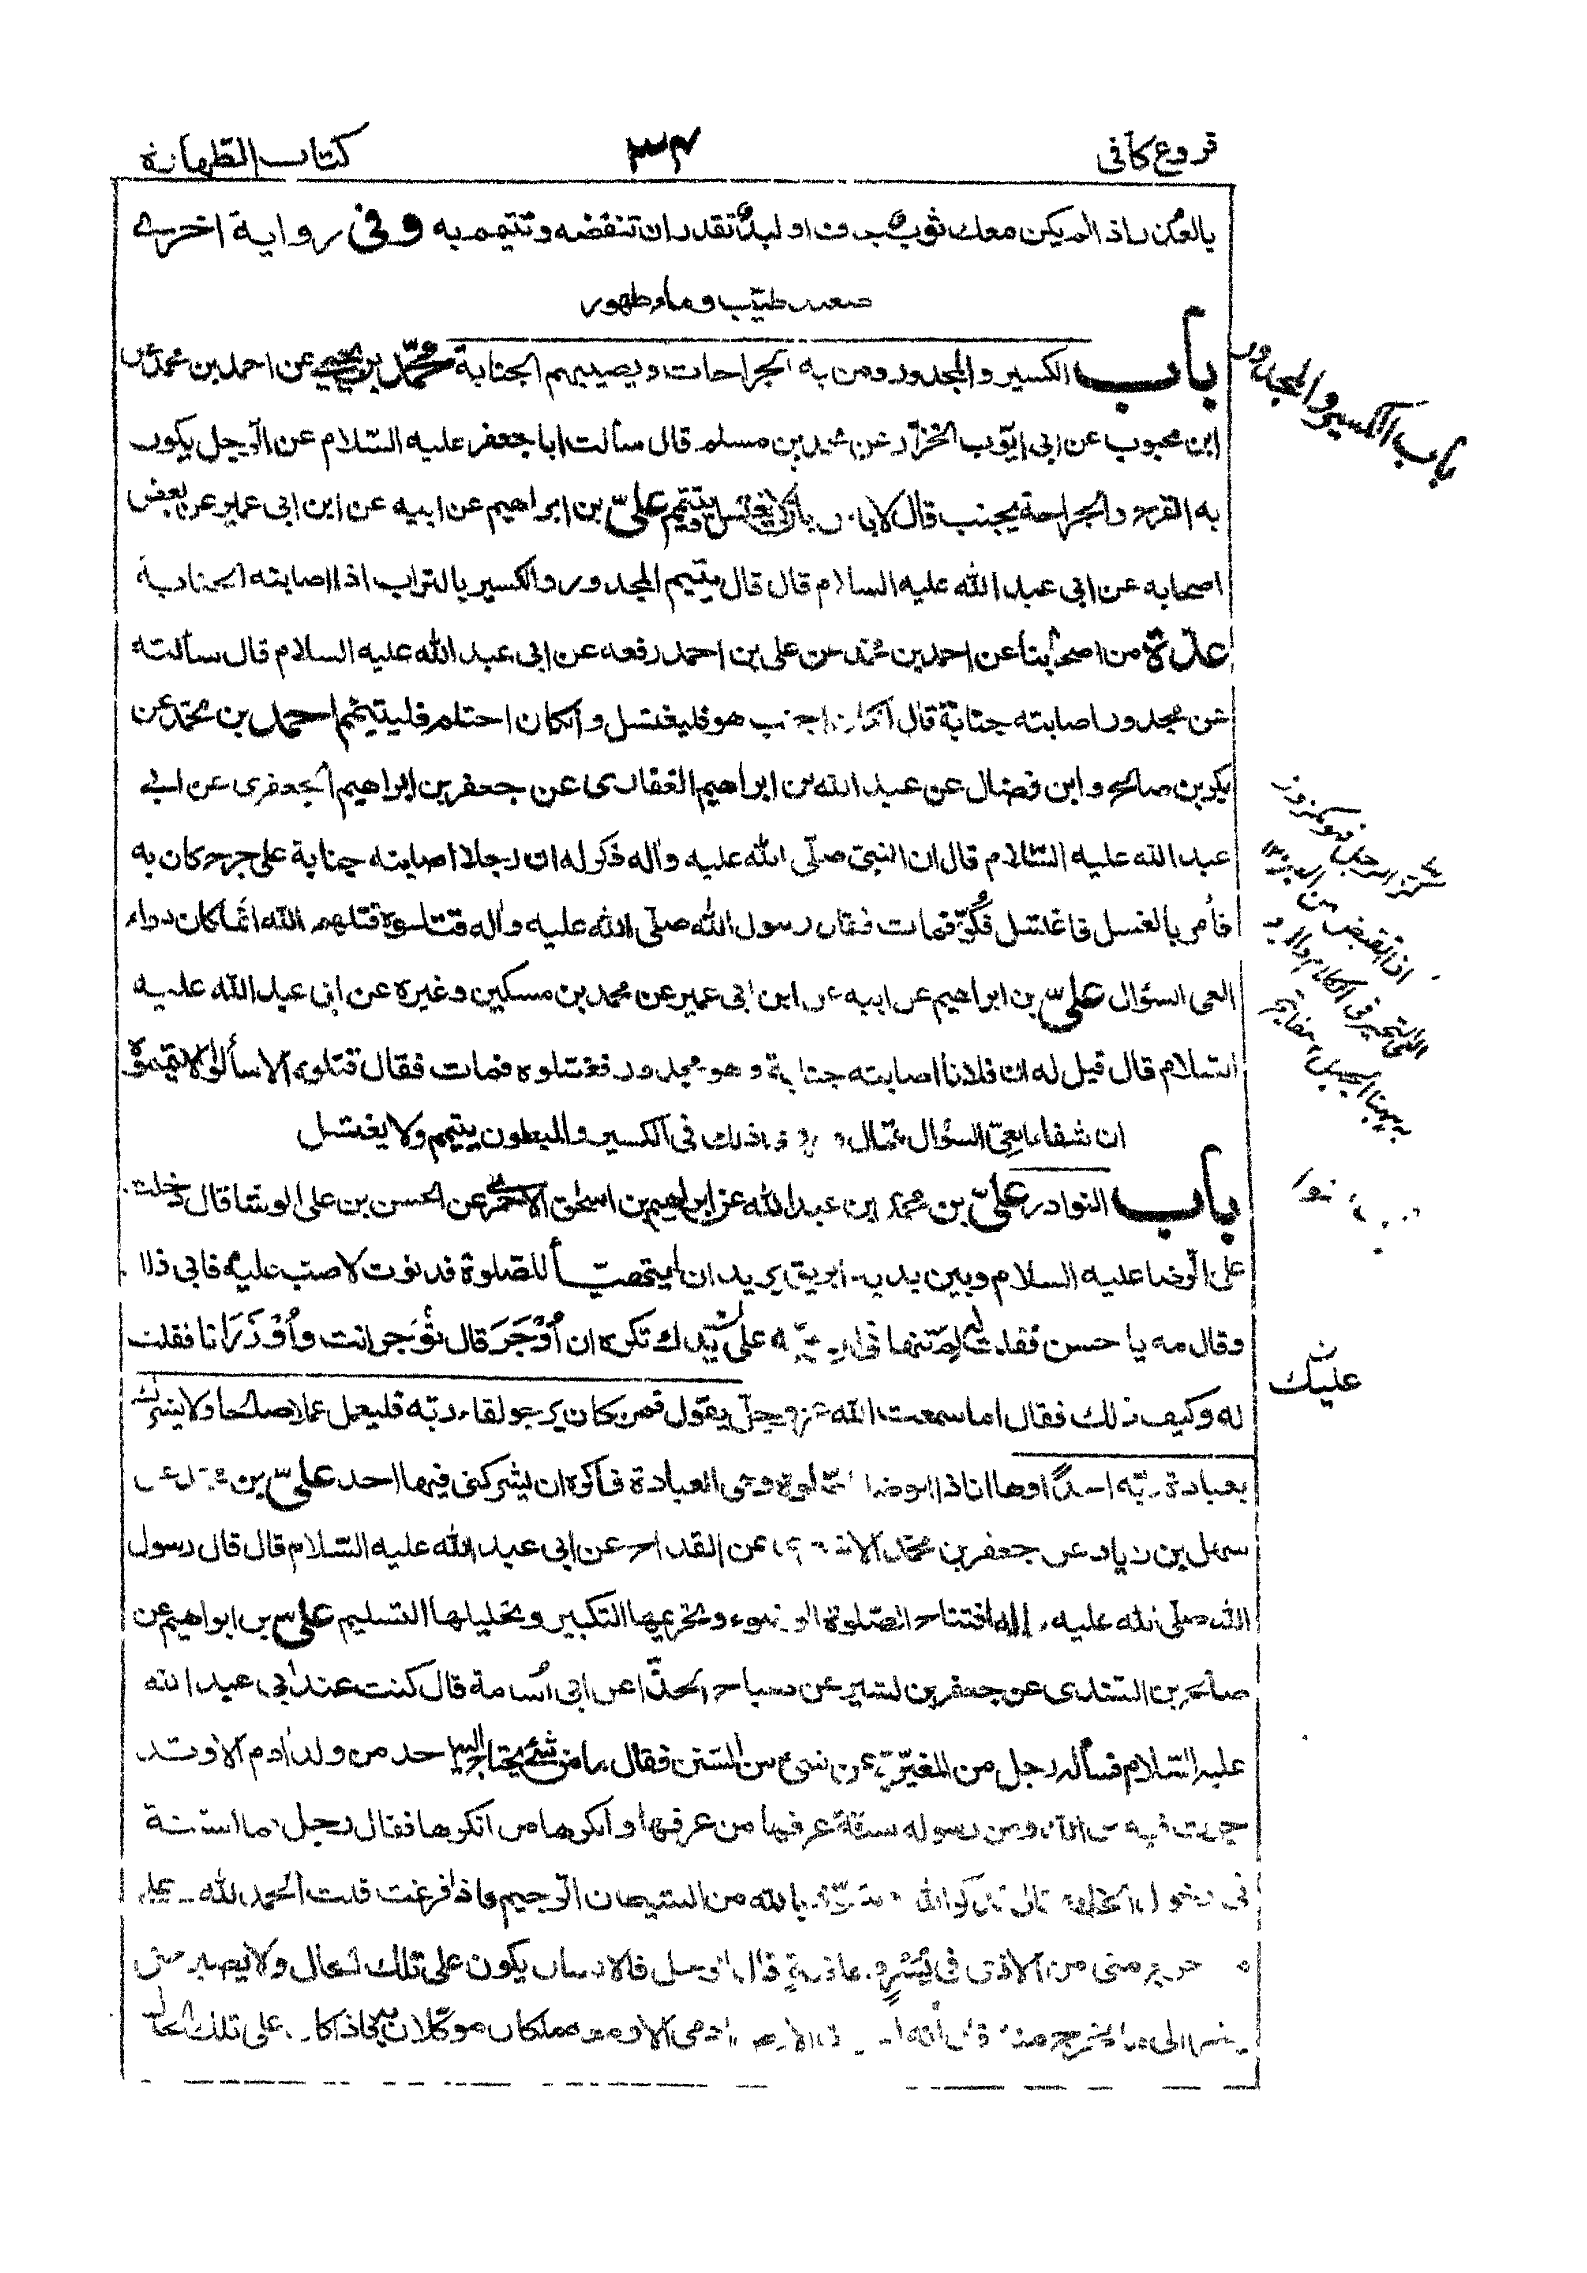 فروع كافى
٣٤
كتاب الطهارة
بالعذر اذا لم يكن معك ثوب جاف او لبد تقدر ان تنفضه وتتيمم به وفى رواية اخرى
صعيد طيب وماء طهور
باب الكسير والمجدور ومن به الجراحات ويصيبهم الجنابة محمد بن يحيى عن احمد بن محمد عن
ابن محبوب عن ابى ايوب الخزاز عن محمد بن مسلم قال سألت ابا جعفر عليه السلام عن الرجل يكون
به القرح والجراحة يجنب قال لا باس بان لا يغتسل ويتيمم على بن ابراهيم عن ابيه عن ابن ابى عمير عن بعض
اصحابه عن ابى عبد الله عليه السلام قال قال يتيمم المجدور والكسير بالتراب اذا اصابته الجنابة
عدة من اصحابنا عن احمد بن محمد عن على بن احمد رفعه عن ابى عبد الله عليه السلام قال سألته
عن مجدور اصابته جنابة قال ان كان اجنب هو فليغتسل وان كان احتلم فليتيمم احمد بن محمد عن
بكر بن صالح وابن فضال عن عبد الله بن ابراهيم الغفارى عن جعفر بن ابراهيم الجعفرى عن ابى
عبد الله عليه السلام قال ان النبى صلى الله عليه واله ذكر له ان رجلا اصابته جنابة على جرح كان به
فأمر بالغسل فاغتسل فكز فمات فقال رسول الله صلى الله عليه واله قتلوه قتلهم الله انما كان دواء
العى السؤال على بن ابراهيم عن ابيه عن ابن ابى عمير عن محمد بن مسكين وغيره عن ابى عبد الله عليه
السلام قال قيل له ان فلانا اصابته جنابة وهو مجدور فغسلوه فمات فقال قتلوه الا سألوا الا يمموه
ان شفاء العى السؤال قال و روى ذلك فى الكسير والمبطون يتيمم ولا يغتسل
باب النوادر على بن محمد بن عبد الله عن ابراهيم بن اسحق الاحمر عن الحسن بن على الوشا قال دخلت
على الرضا عليه السلام وبين يديه ابريق يريد ان يتهيأ للصلوة فدنوت لاصب عليه فابى ذلك
وقال مه يا حسن فقلت له لم تنهانى ان اصبه على يدك تكره ان أوجر قال تؤجر انت وأوزر انا فقلت
له وكيف ذلك فقال اما سمعت الله عز وجل يقول فمن كان يرجو لقاء ربه فليعمل عملا صالحا ولا يشرك
بعبادة ربه احدا وها انا ذا اتوضا للصلوة وهى العبادة فاكره ان يشركنى فيها احد على بن محمد عن
سهل بن زياد عن جعفر بن محمد الاشعرى عن القداح عن ابى عبد الله عليه السلام قال قال رسول
الله صلى الله عليه واله افتتاح الصلوة الوضوء وتحريمها التكبير وتحليلها التسليم على بن ابراهيم عن
صالح بن السندى عن جعفر بن بشير عن صباح الحذا عن ابى اسامة قال كنت عند ابى عبد الله
عليه السلام فسأله رجل من المغيرية عن شىء من السنن فقال ما من شىء يحتاج اليه احد من ولد ادم الا وقد
جرت فيه من الله ومن رسوله سنة عرفها من عرفها وانكرها من انكرها فقال رجل فما السنة
فى دخول الخلاء قال تذكر الله وتتعوذ بالله من الشيطان الرجيم واذا فرغت قلت الحمد لله على
ما اخرج منى من الاذى فى يسر وعافية قال الرجل فالانسان يكون على تلك الحال ولا يصبر حتى
ينظر الى ما يخرج منه قال انه ليس فى الارض ادمى الا ومعه ملكان موكلان به فاذا كان على تلك الحال
باب الكسير والمجدور
عليك